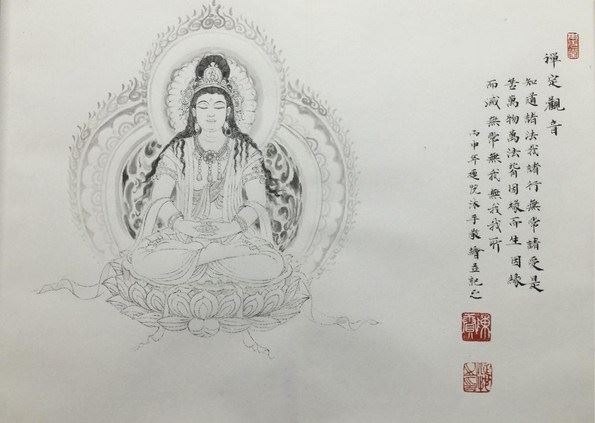 禪定觀音
知道諸法我諸行無常諸受是
苦萬物萬法皆因緣而生因緣
而滅無常無我無我我所
丙申年沐手敬繪並記之